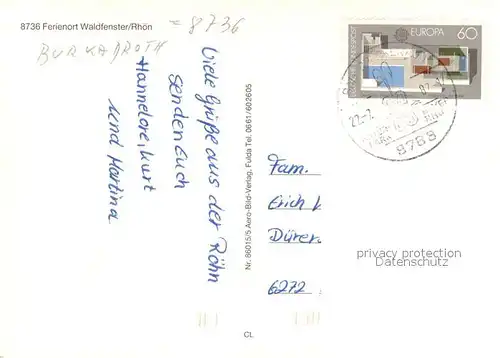 8736 Ferienort Waldfenster/Rhön
= 8736
BURKARDROTH
Viele Grüße aus der Röhn
senden Euch
Hannelore, Kurt
und Martina
Nr. 86015/5 Aero-Bild-Verlag, Fulda Tel. 0661/602605
CL
DEUTSCHE BUNDESPOST
EUROPA 60
8788
Fam.
Erich
Dürer
6272
privacy protection
Datenschutz